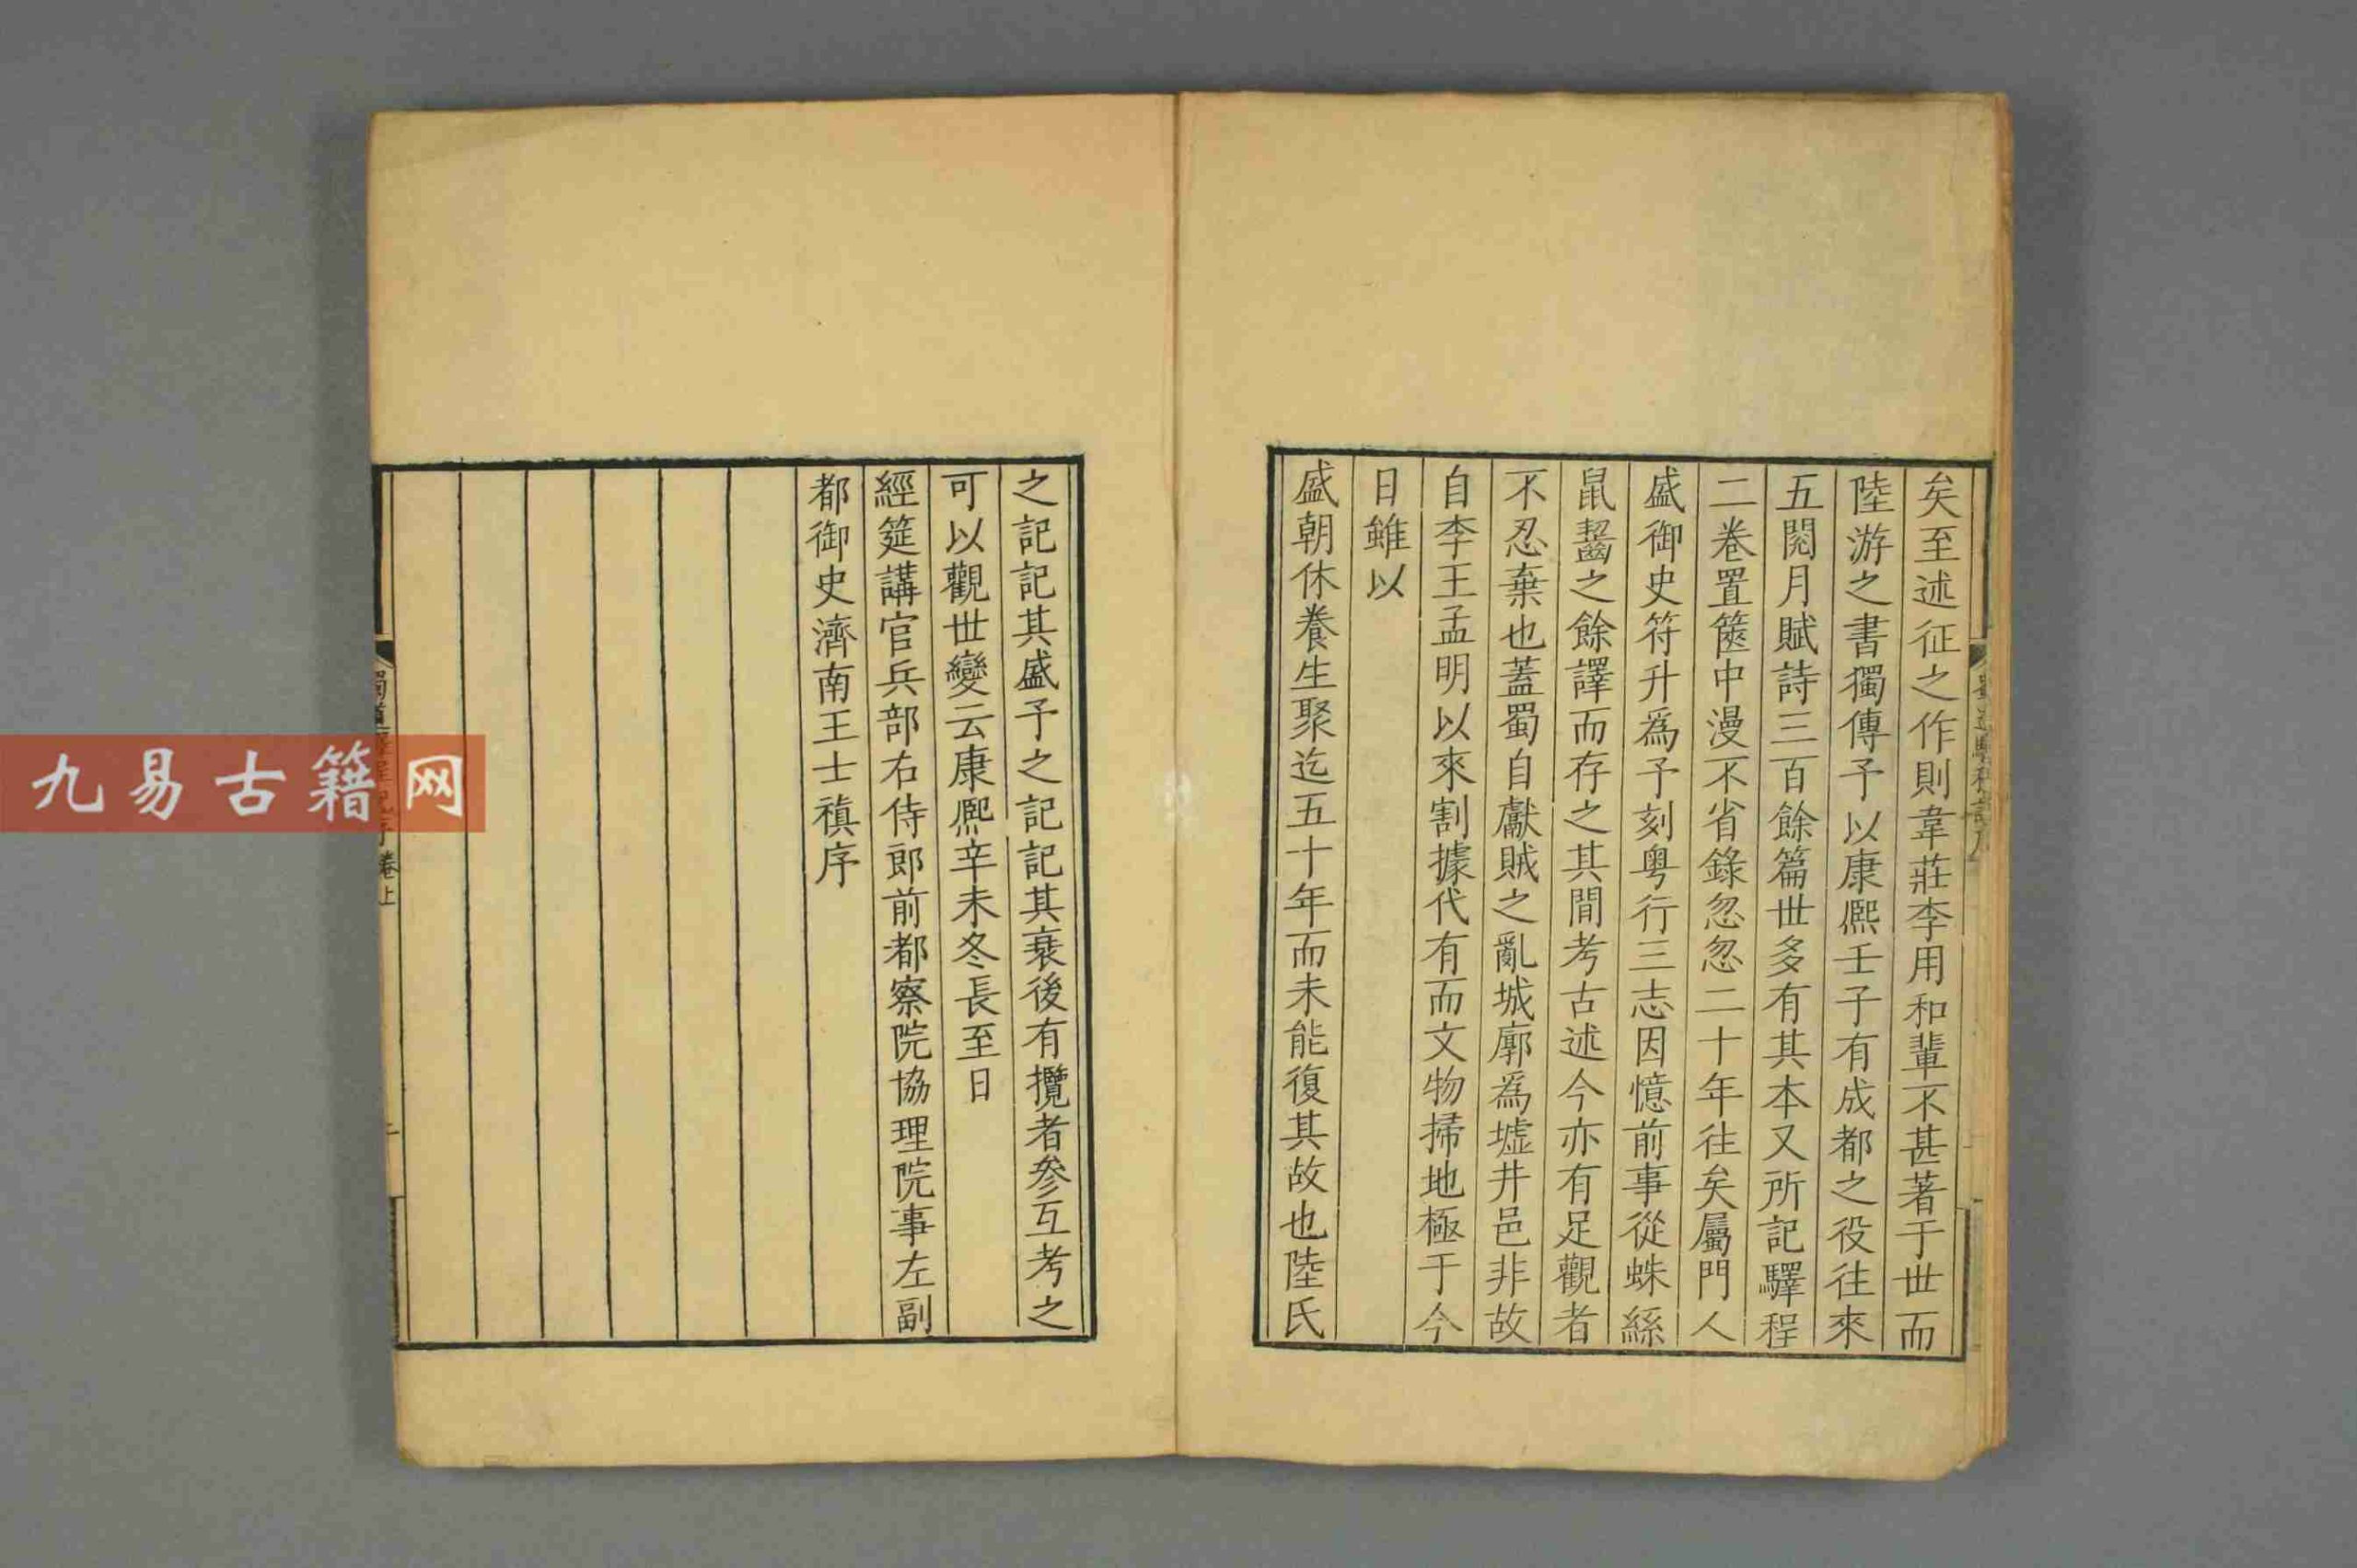 矣至述征之作則韋莊李用和輩不甚著于世而
陸游之書獨傳予以康熙壬子有成都之役往來
五閱月賦詩三百餘篇世多有其本又所記驛程
二卷置篋中漫不省錄忽忽二十年往矣屬門人
盛御史符升爲予刻粵行三志因憶前事從蛛絲
鼠齧之餘譯而存之其間考古述今亦有足觀者
不忍棄也蓋蜀自獻賊之亂城廓爲墟井邑非故
自李王孟明以來割據代有而文物掃地極于今
日雖以
盛朝休養生聚迄五十年而未能復其故也陸氏
之記記其盛予之記記其衰後有攬者參互考之
可以觀世變云康熙辛未冬長至日
經筵講官兵部右侍郎前都察院協理院事左副
都御史濟南王士禛序
蜀道驛程記序 卷上
九易古籍网